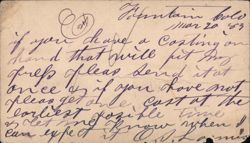 Fountain Colo
Mar 20 '83
if you have a casting on
hand that will fit my
press pleas send it at
once & if you have not
pleas get one cast at the
earliest posible time
& let me know when I
can expect it